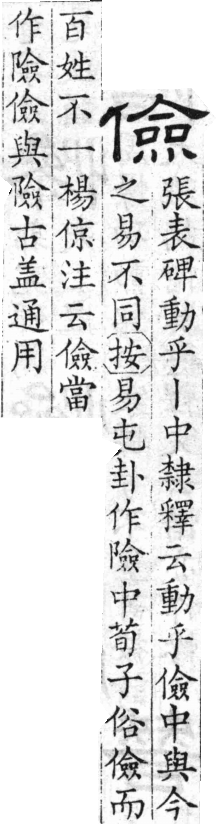 儉
張表碑動乎丨中隸釋云動乎儉中與今
之易不同按易屯卦作險中荀子俗儉而
百姓不一楊倞注云儉當
作險儉與險古盖通用